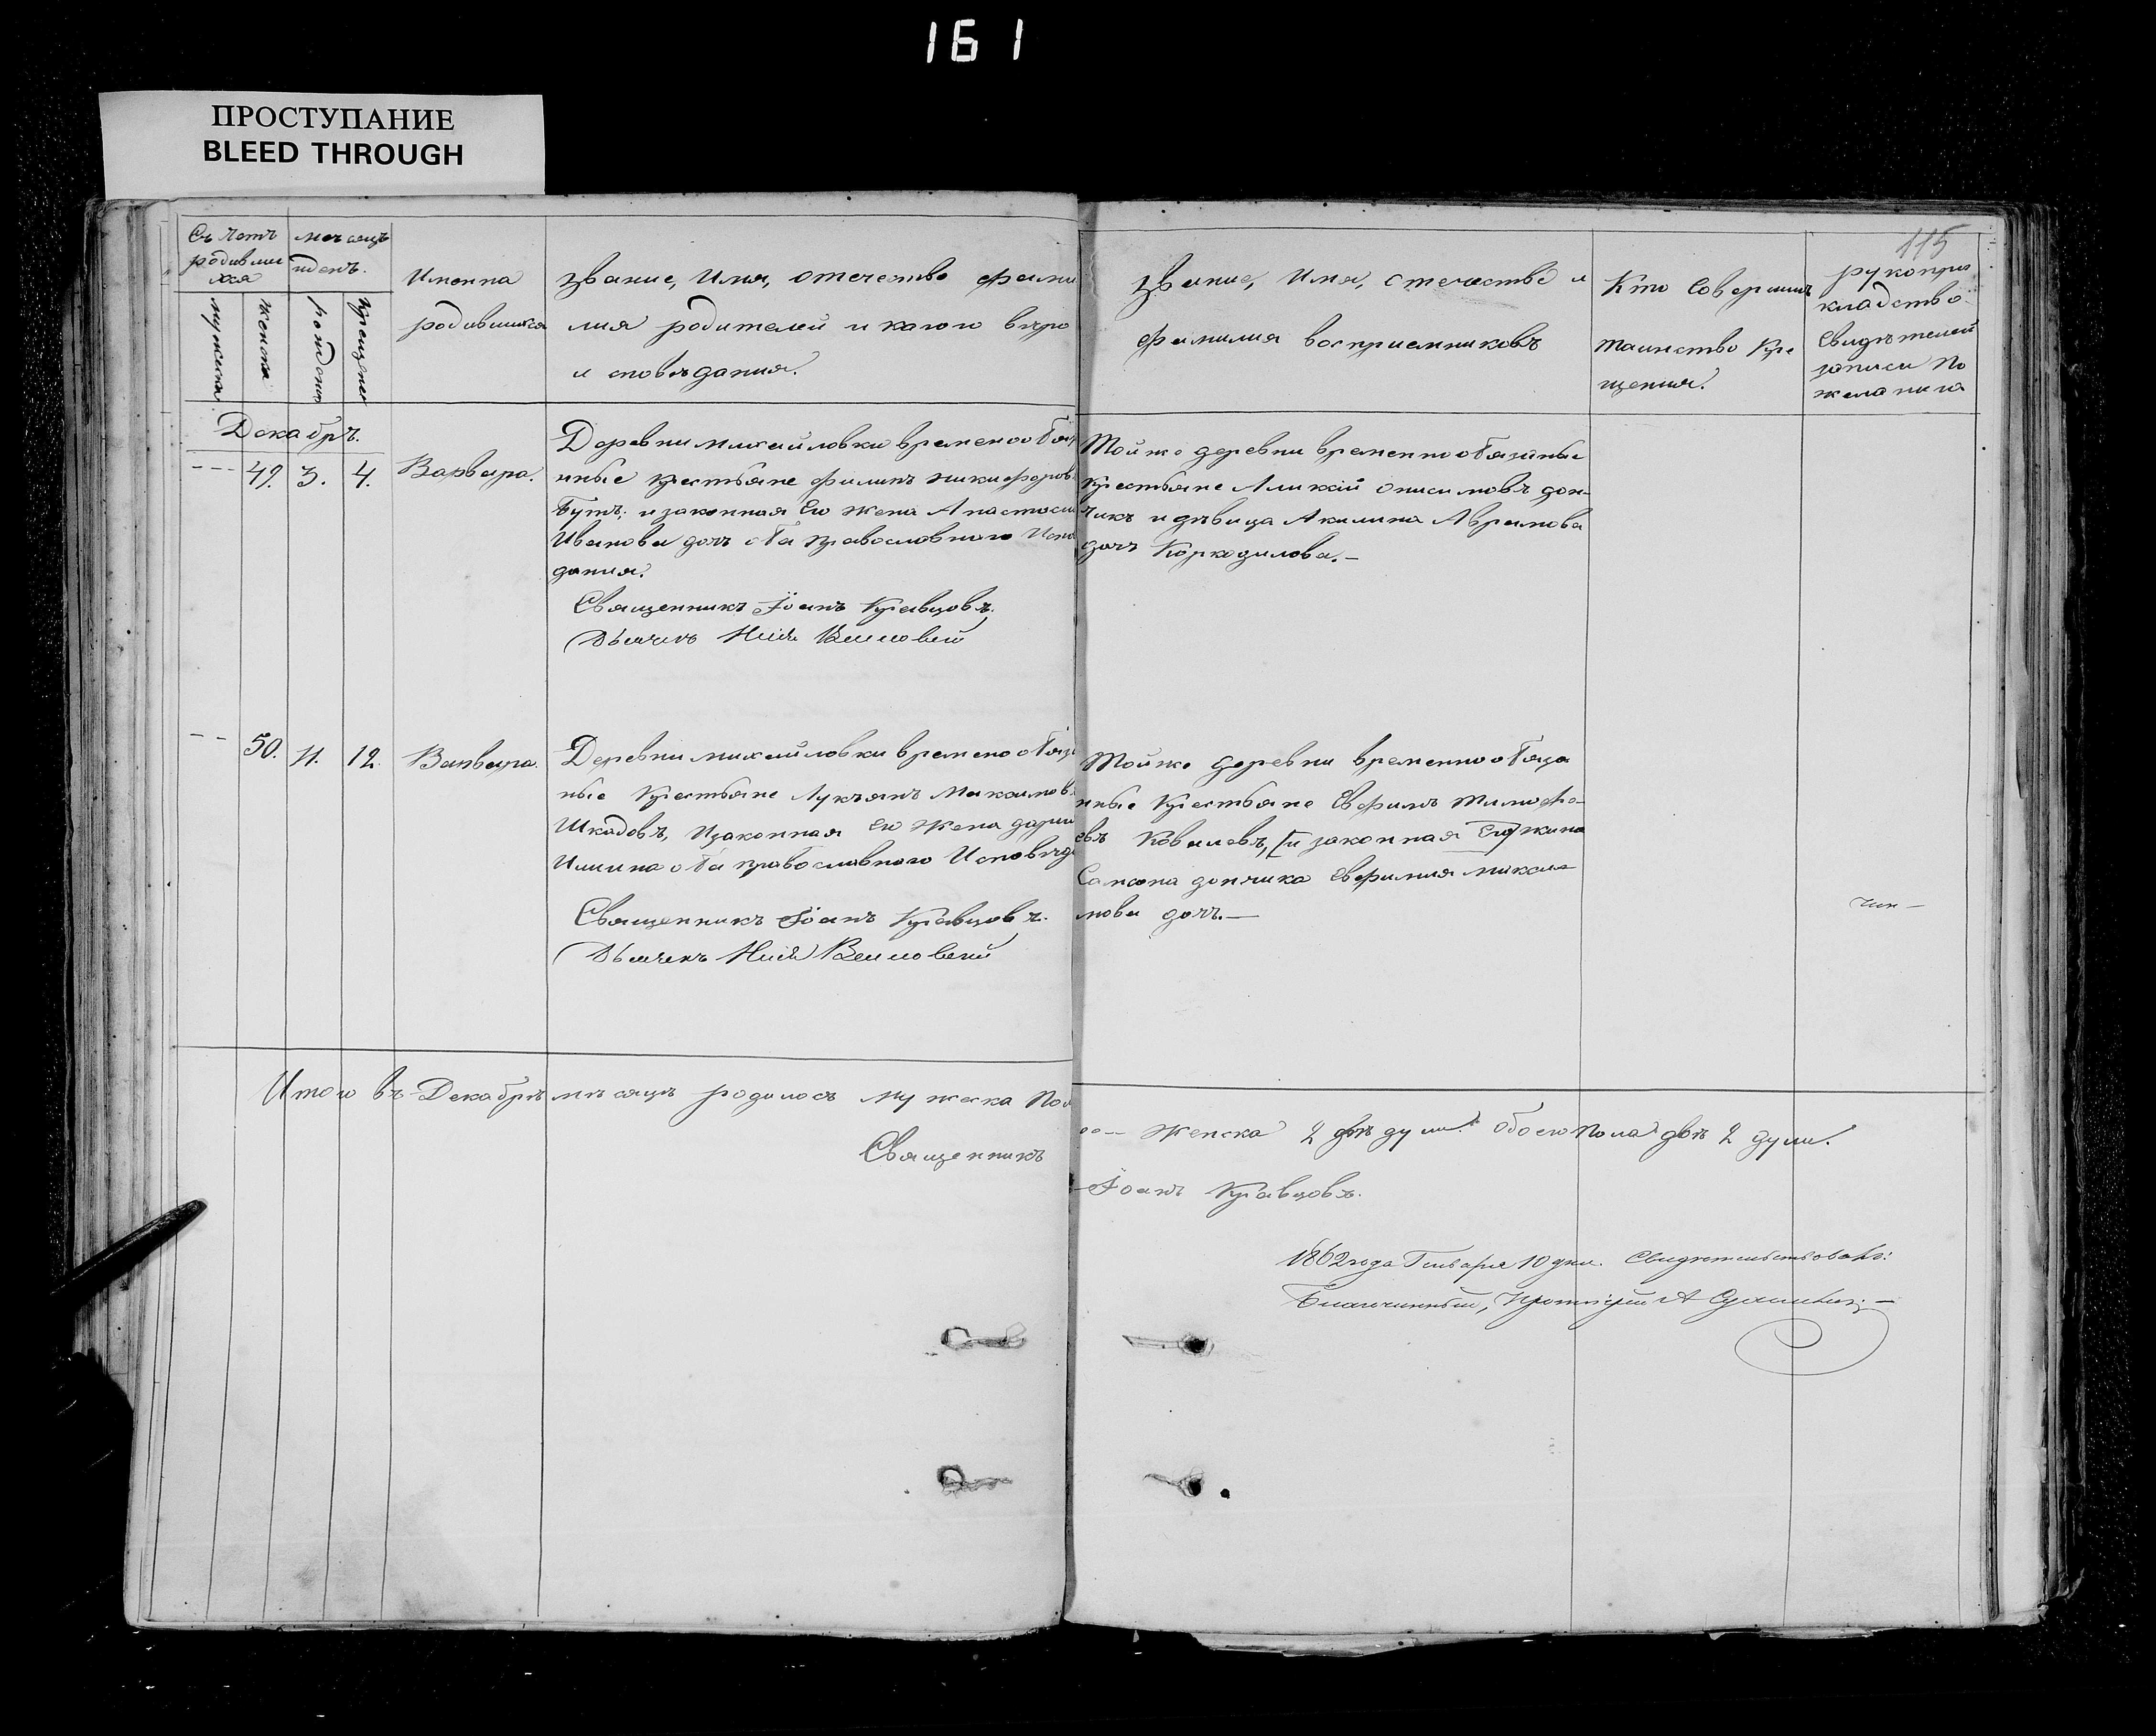 161
ПРОСТУПАНИЕ
BLEED THROUGH
115
Съчетъ
родивши
хся
мужеска
женска
месяцъ
иденъ.
рожденія
крещенія
Имонна
родившихся
Званіе, Имя, отечество фами
лия родителей и какого веро
и споведания.
Званіе, Имя, отечество и
фамилия восприемниковъ
Кто Совершилъ
таинство Кре
щения.
рукопри
кладство
Свидетелей
записи По
желанию
Декабрь.
49. 3. 4. Варвара.
Деревни михайловки временообяз
нные крестьяне филипъ никифоровъ
Бутъ; изаконная Его жена Анастасия
Иванова дочъ оба православного Испо
дания.
Священникъ Іоанъ Кравцовъ.
Дьячекъ
Тойже деревни временнообязаные
крестьяне онисимовъ дон-
чикъ идѣвица Акилина Аврамова
дочъ Коркодилова.-
50. 11. 12. Варвара.
Деревни михайловки временообяз
ные Крестьяне Лукъянъ Максимовъ
Шкадовъ, Изаконная Его жена дария
Илиина оба православного Исповеда
Священникъ Іоанъ Кравцовъ.
Дьячекъ
Тойже деревни временнообяза
нные Крестьяне Евфимъ тимофе-
евъ Ковалевъ, [и законная Его] жина
Самсона дончика Евфимия макси-
мова дочъ.-
Итого въ Декабрѣ мѣсяцѣ родилось мужеска Пол
женска 2 двѣ души. обоего Пола двѣ 2 души.
Священникъ
Іоанъ Кравцовъ.
1862 года Генваря 10 дня. Свидетельствовалъ:
Благочинный, Протоіерей А